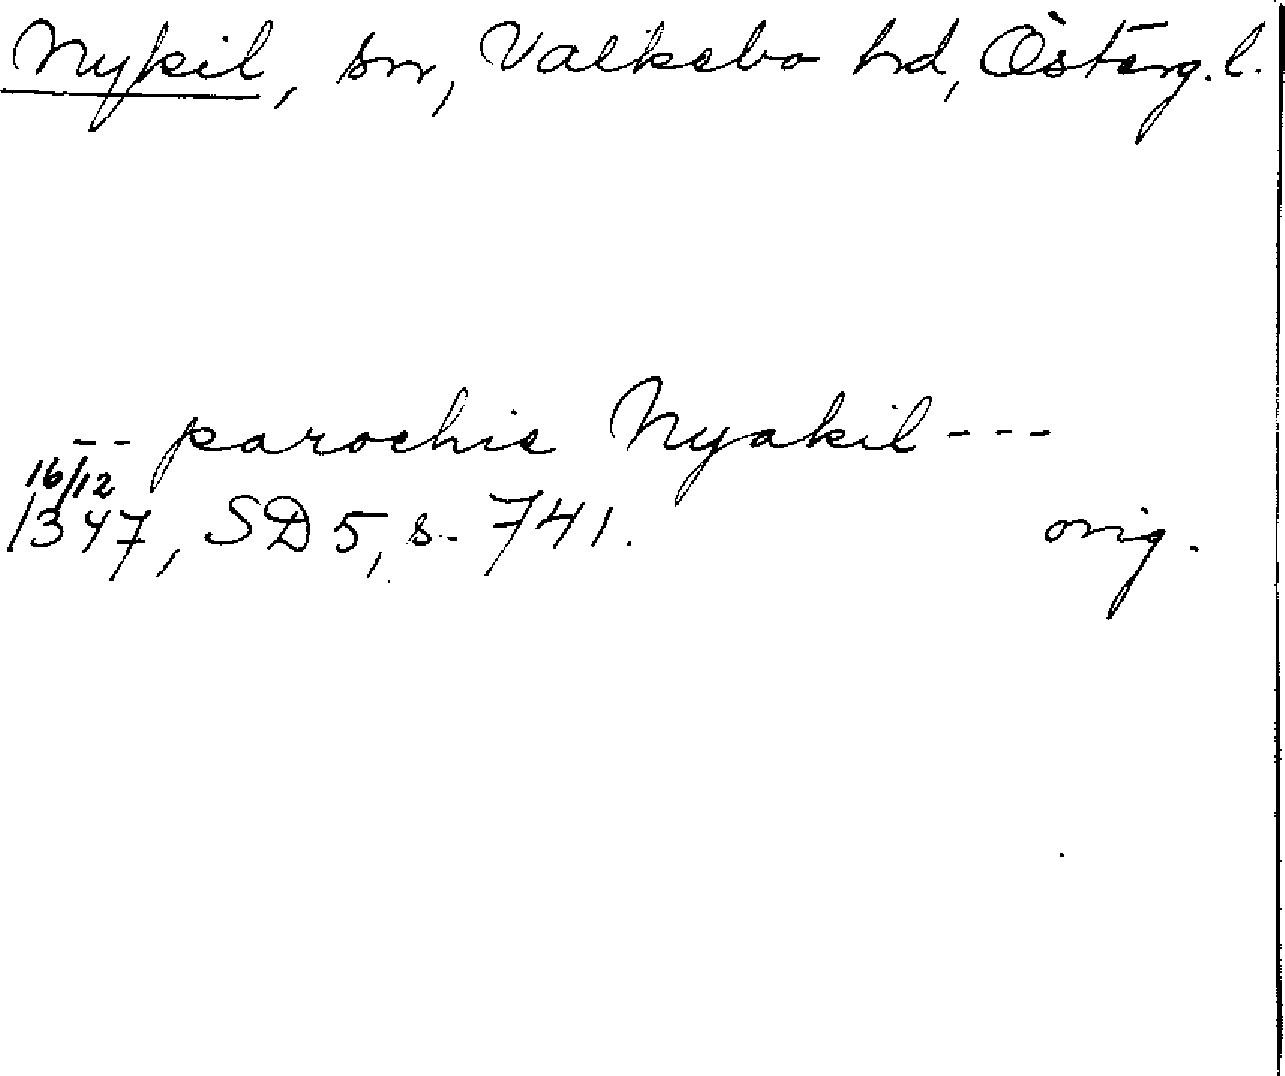 Nykil, sn, Valkebo hd, Österg. l.
-- parochie Nyakil ---
16/12
1347, SD 5, s. 741. orig.